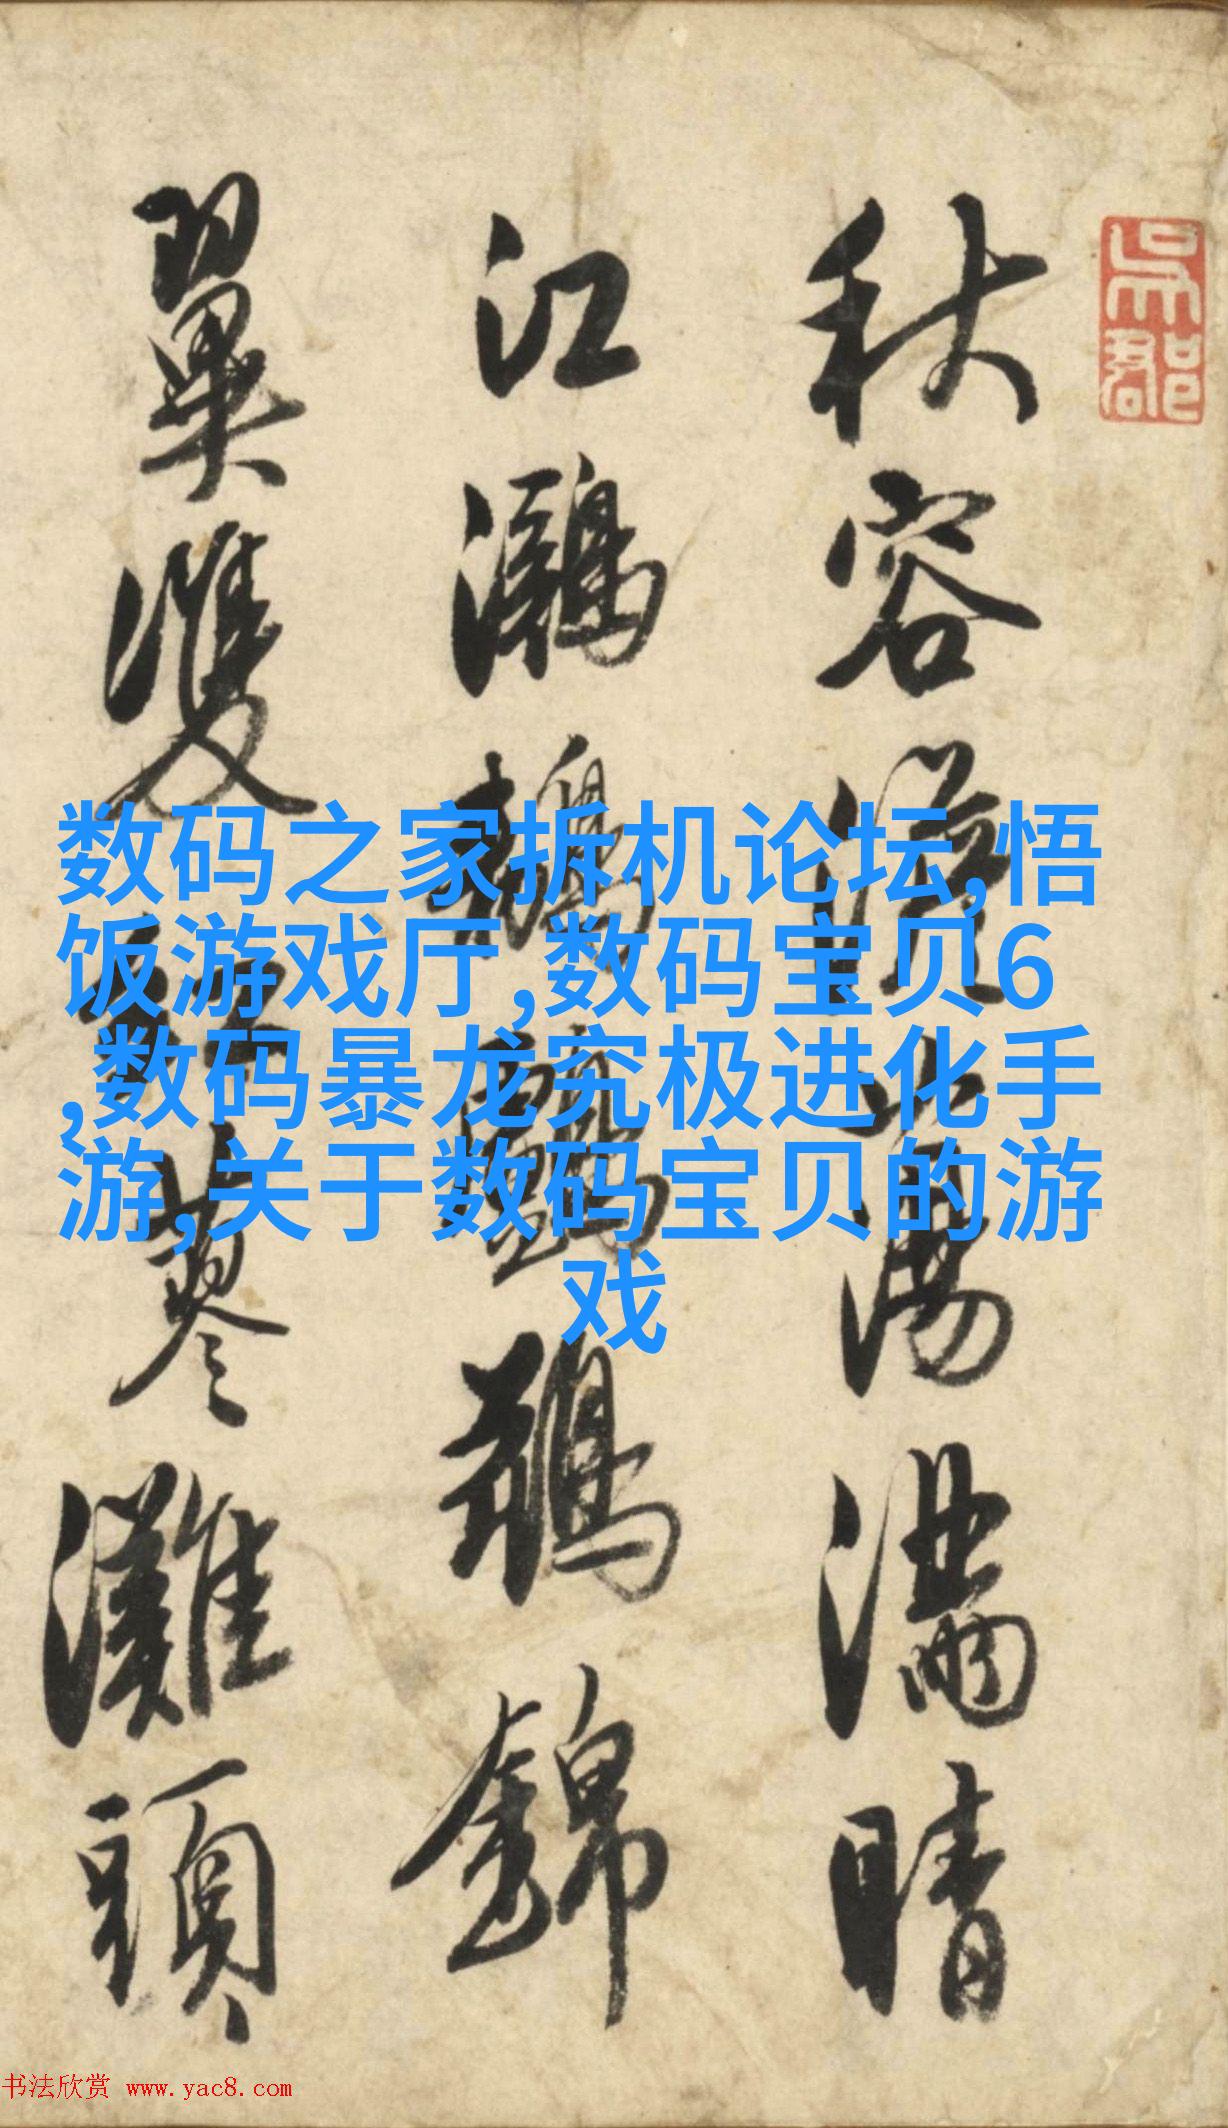 吳郡
秋容蕩滿晴
江鸂鶒鶄錦
翼雙紅蓼灘頭
数码之家拆机论坛,悟
饭游戏厅,数码宝贝6
,数码暴龙究极进化手
游,关于数码宝贝的游
戏
书法欣赏 www.yac8.com